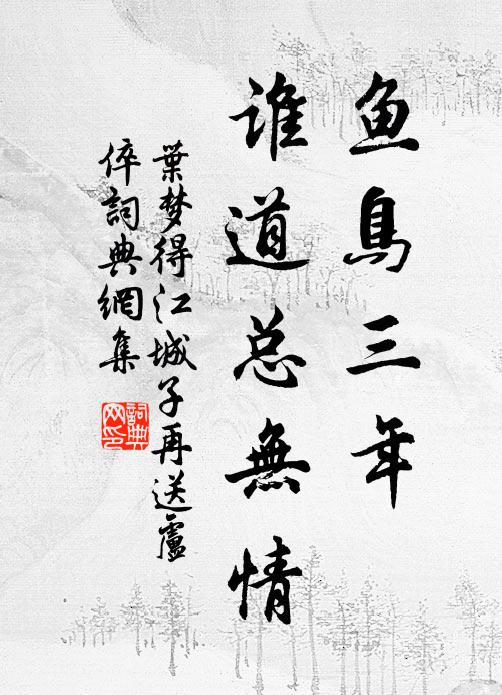 鱼鳥三年
谁道总無情
葉梦得江城子再送盧
倅詞典網集
詞典网印